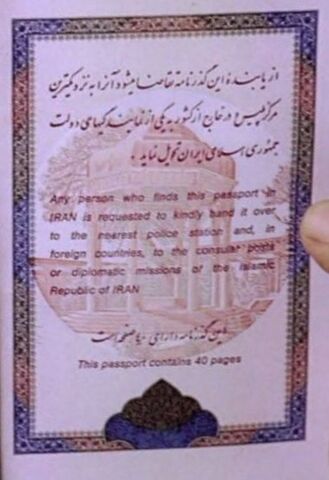 از یابنده این گذرنامه تقاضا میشود آنرا به نزدیکترین
مرکز پلیس و در خارج از کشور به یکی از نمایندگیهای دولت
جمهوری اسلامی ایران تحویل نماید.
Any person who finds this passport in
IRAN is requested to kindly hand it over
to the nearest police station and, in
foreign countries, to the consular posts
or diplomatic missions of the Islamic
Republic of IRAN
این گذرنامه دارای ۴۰ صفحه است
This passport contains 40 pages